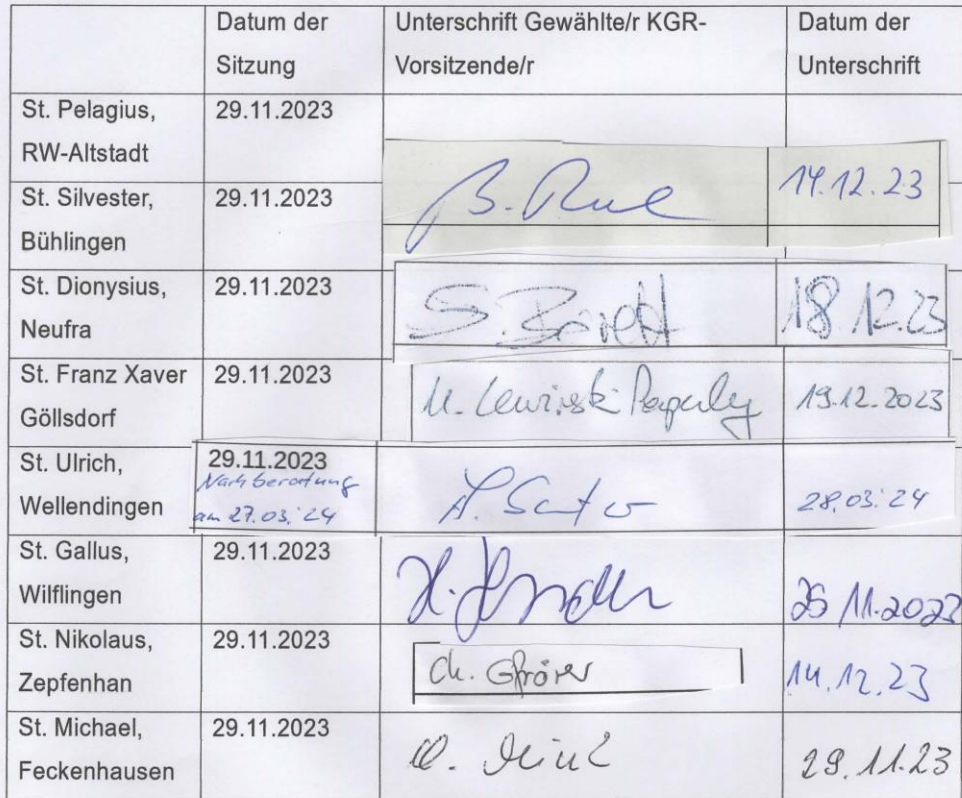 Datum der Sitzung Unterschrift Gewählte/r KGR-Vorsitzende/r Datum der Unterschrift
St. Pelagius, RW-Altstadt 29.11.2023
St. Silvester, Bühlingen 29.11.2023 14.12.23
St. Dionysius, Neufra 29.11.2023 18.12.23
St. Franz Xaver Göllsdorf 29.11.2023 19.12.2023
St. Ulrich, Wellendingen 29.11.2023 Nachberatung am 27.03.'24 28.03.'24
St. Gallus, Wilflingen 29.11.2023 11.2023
St. Nikolaus, Zepfenhan 29.11.2023 Ch. Gfrörer 14.12.23
St. Michael, Feckenhausen 29.11.2023 29.11.23